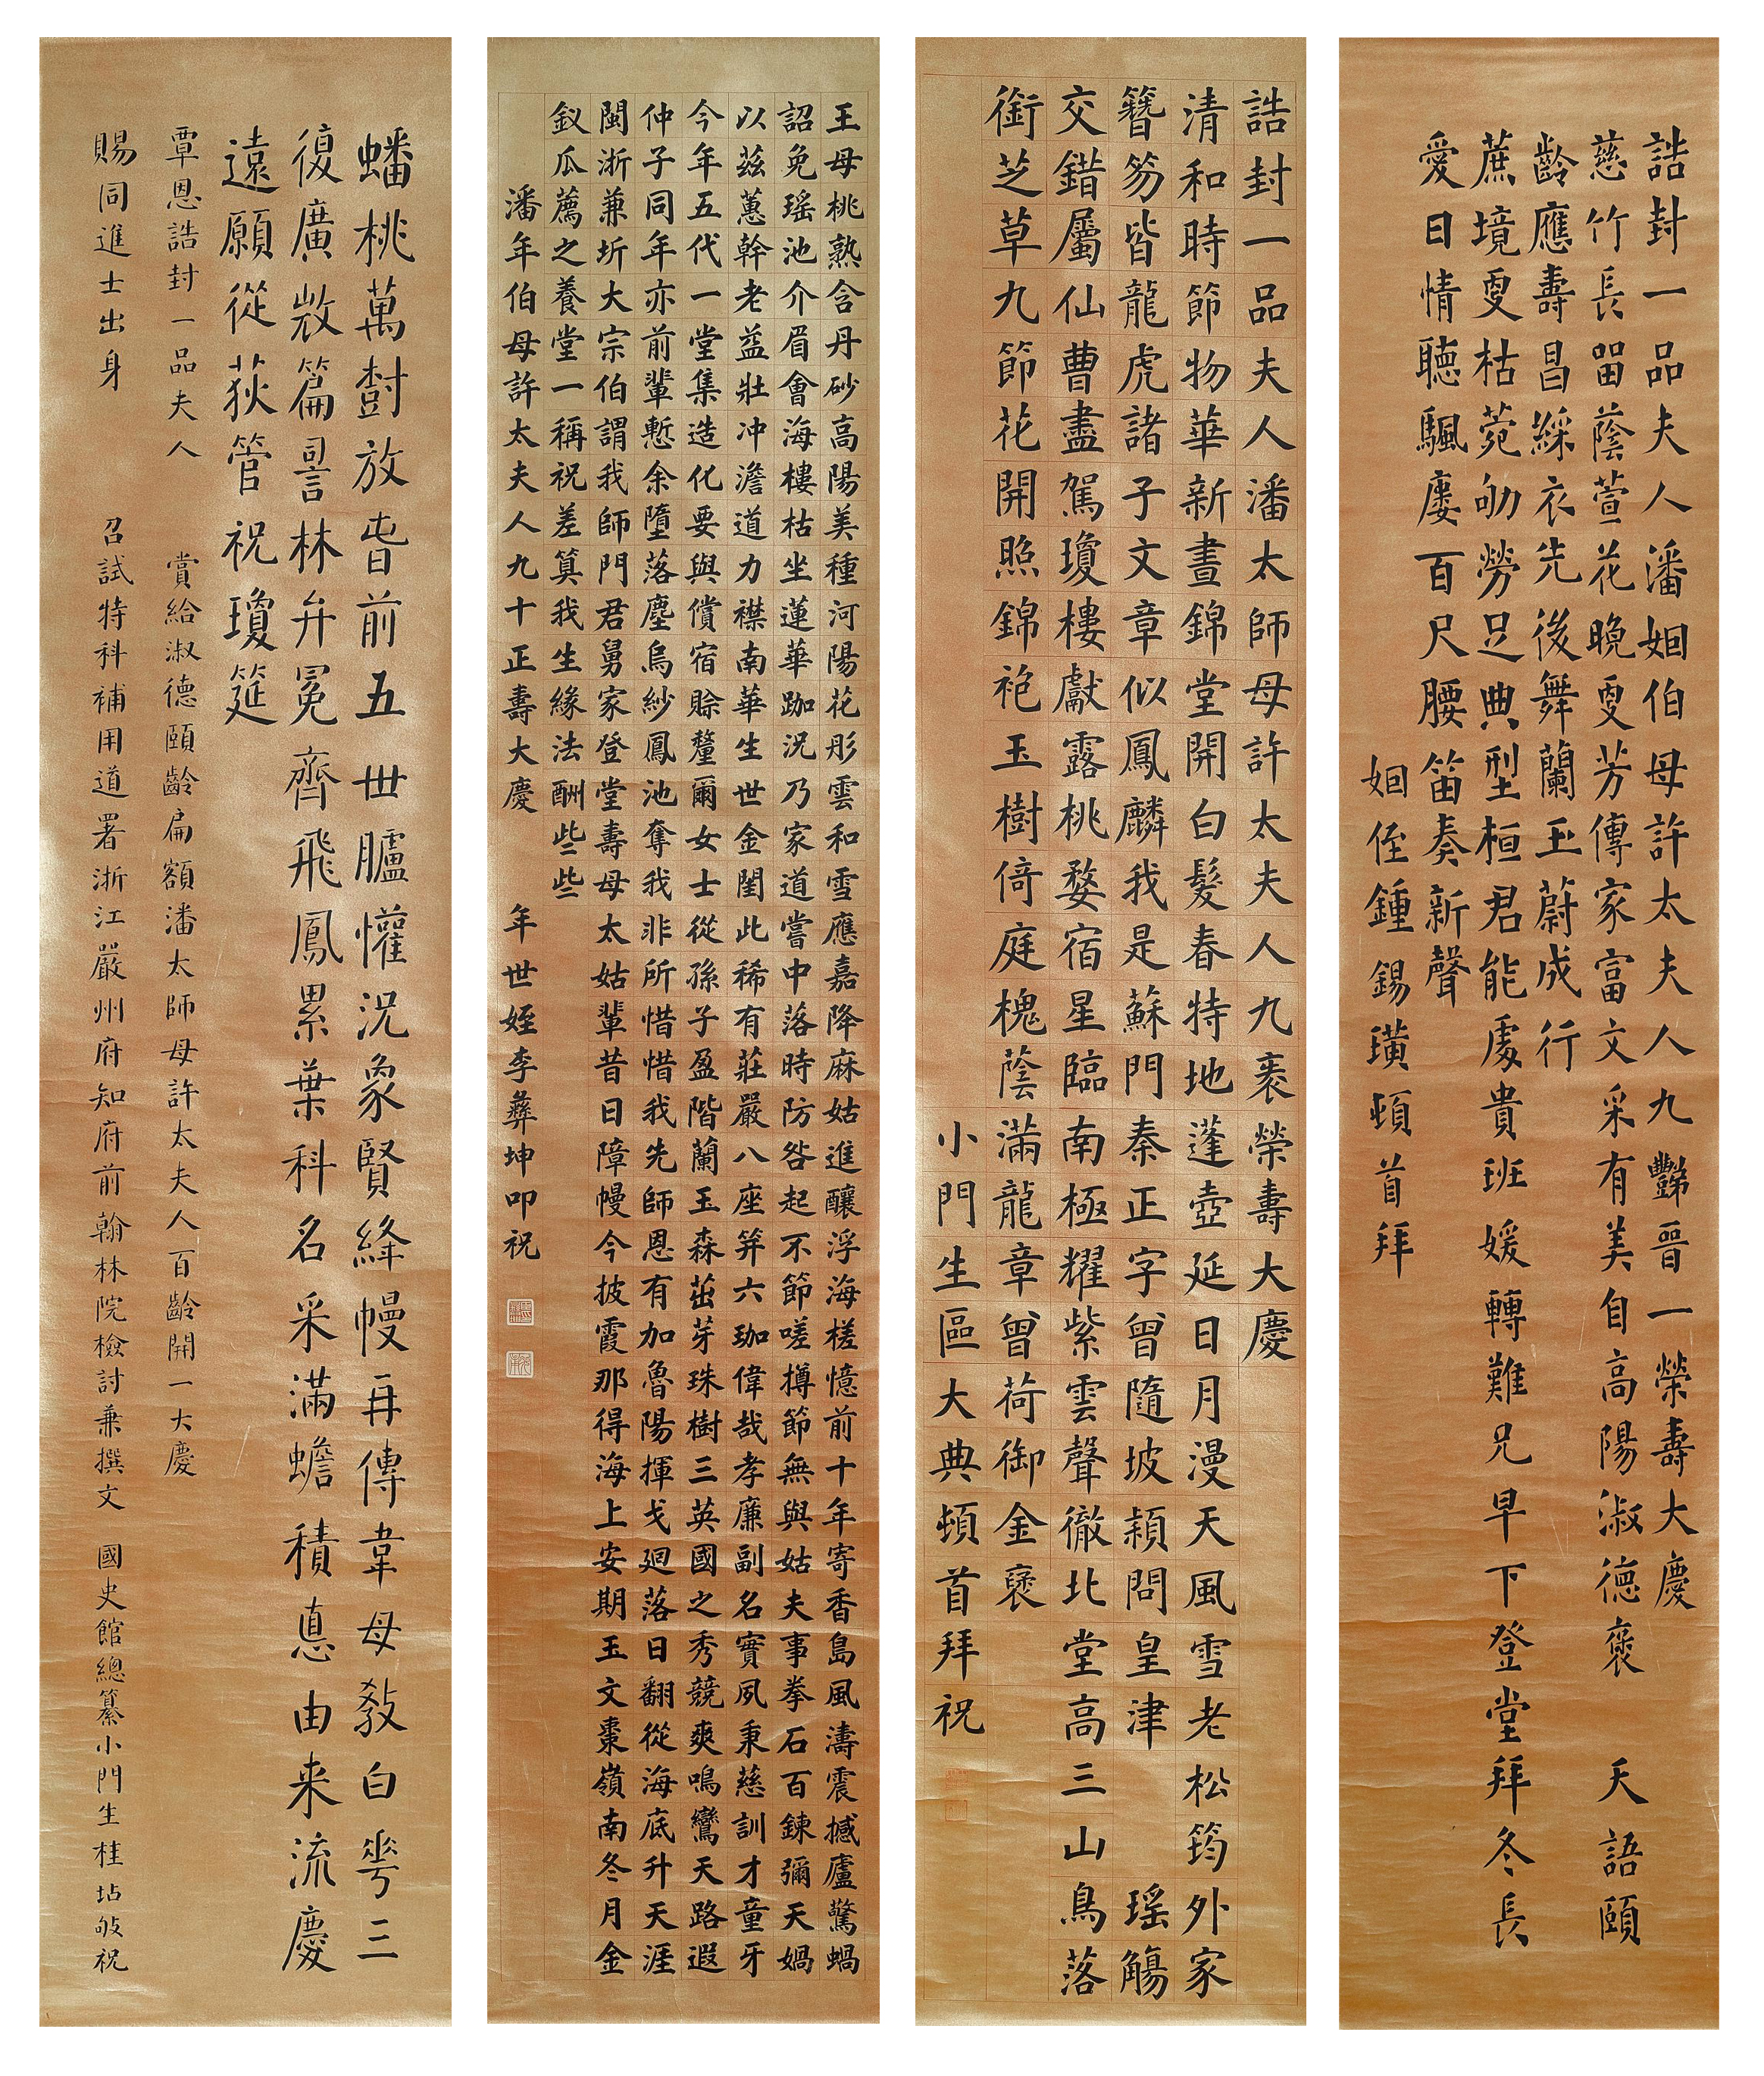 誥封一品夫人潘姻伯母許太夫人九豔晉一榮壽大慶
慈竹長留蔭萱花晚更芳傳家富文采有美自高陽淑德褒 天語頤
齡應壽昌綵衣先後舞蘭玉蔚成行
蔗境更枯菀劬勞足典型桓君能處貴班媛轉難兄早下登堂拜冬長
愛日情聽颿廔百尺腰笛奏新聲
姻侄鍾錫璜頓首拜
誥封一品夫人潘太師母許太夫人九袠榮壽大慶
清和時節物華新晝錦堂開白髮春特地蓬壺延日月漫天風雪老松筠外家
簪笏皆龍虎諸子文章似鳳麟我是蘇門秦正字曾隨坡潁問皇津 瑤觴
交錯屬仙曹盡駕瓊樓獻露桃婺宿星臨南極耀紫雲聲徹北堂高三山鳥落
銜芝草九節花開照錦袍玉樹倚庭槐蔭滿龍章曾荷御金褒
小門生區大典頓首拜祝
王母桃熟含丹砂高陽美種河陽花彤雲和雪應嘉降麻姑進釀浮海槎憶前十年寄香島風濤震撼廬驚蝸
詔免瑤池介眉會海樓枯坐蓮華跏況乃家道嘗中落時防咎起不節嗟撙節無與姑夫事拳石百鍊彌天媧
以茲蕙幹老益壯冲澹道力襟南華生世金閨此稀有莊嚴八座笄六珈偉哉孝廉副名實夙秉慈訓才童牙
今年五代一堂集造化要與償宿賒釐爾女士從孫子盈階蘭玉森茁芽珠樹三英國之秀競爽鳴鸞天路遐
仲子同年亦前輩慙余墮落塵烏紗鳳池奪我非所惜惜我先師恩有加魯陽揮戈迴落日翻從海底升天涯
閩浙兼圻大宗伯謂我師門君舅家登堂壽母太姑輩昔日障幔今披霞那得海上安期玉文棗嶺南冬月金
釵瓜薦之養堂一稱祝差算我生緣法酬些些
潘年伯母許太夫人九十正壽大慶 年世姪李彝坤叩祝
蟠桃萬樹放峕前五世臚懽況象賢絳幔再傳韋母教白華三
復廣㪚篇詞林弁冕齊飛鳳累葉科名采滿蟾積悳由来流慶
遠願從荻管祝瓊筵
覃恩誥封一品夫人 賞給淑德頤齡扁額潘太師母許太夫人百齡開一大慶
賜同進士出身 召試特科補用道署浙江嚴州府知府前翰林院檢討兼撰文 國史館總纂小門生桂坫敬祝